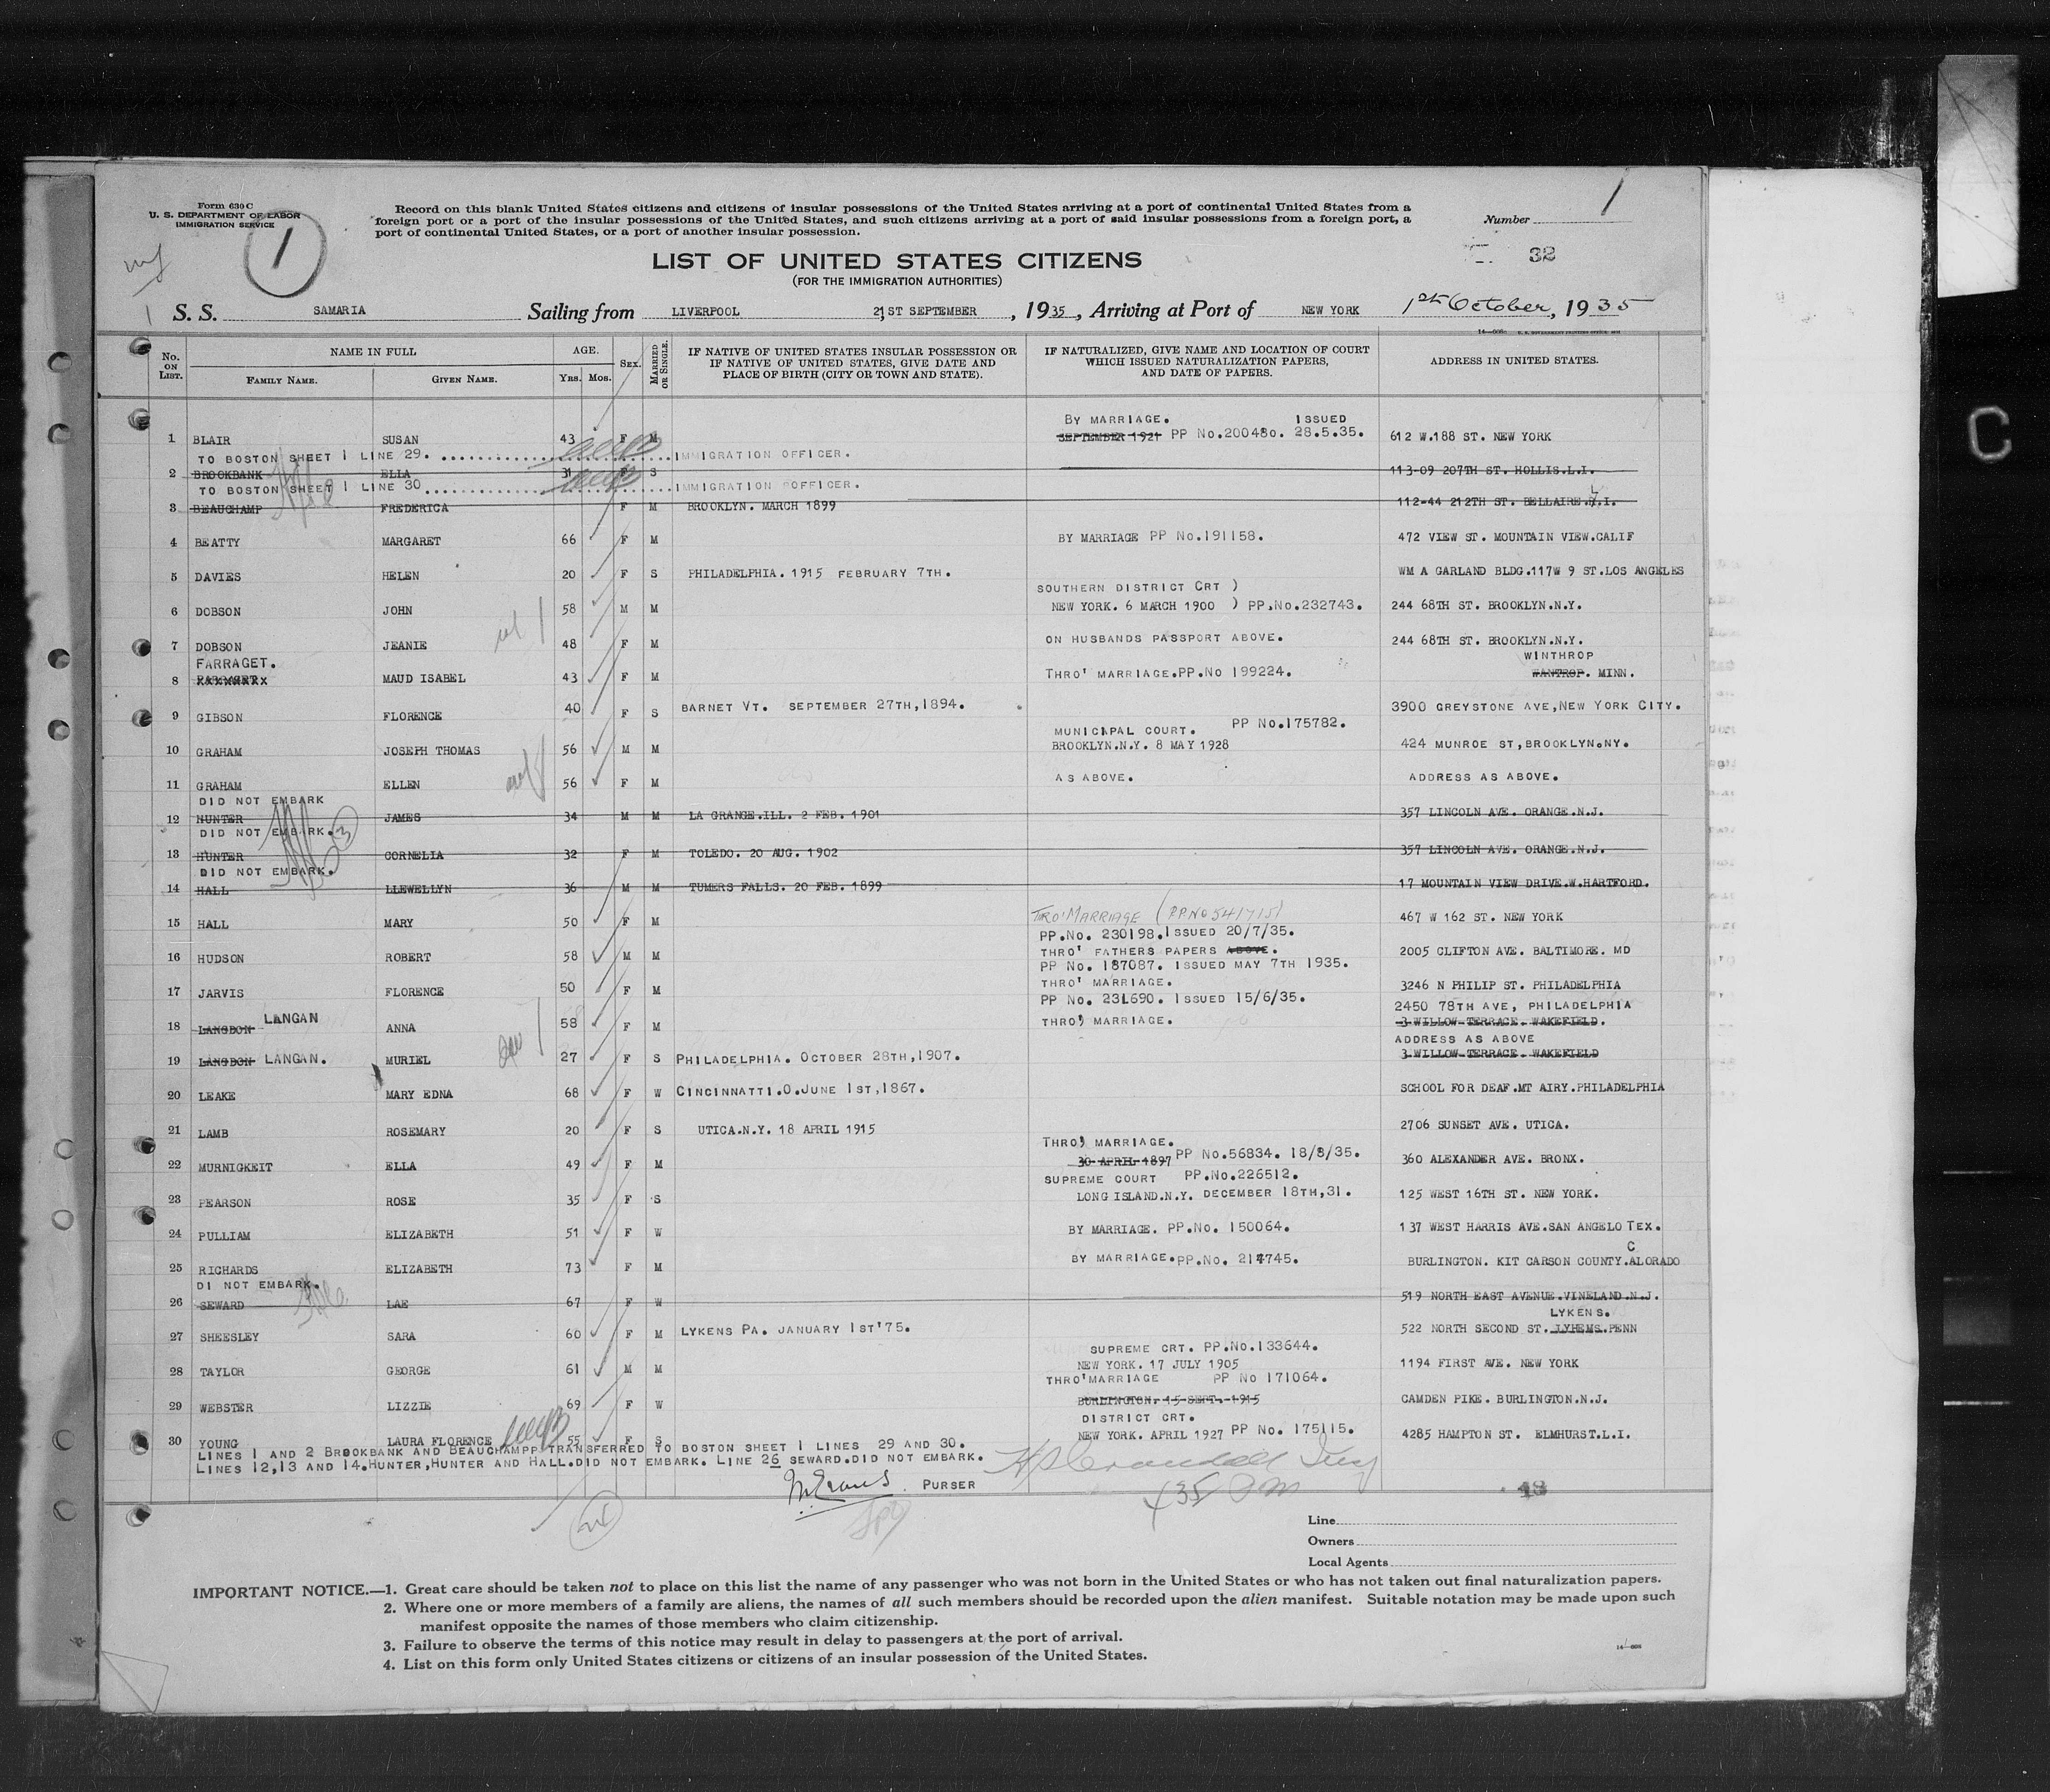 Form 630 C
U. S. DEPARTMENT OF LABOR
IMMIGRATION SERVICE
1
Record on this blank United States citizens and citizens of insular possessions of the United States arriving at a port of continental United States from a
foreign port or a port of the insular possessions of the United States, and such citizens arriving at a port of said insular possessions from a foreign port, a
port of continental United States, or a port of another insular possession.
Number 1
32
LIST OF UNITED STATES CITIZENS
(FOR THE IMMIGRATION AUTHORITIES)
1 S. S. SAMARIA Sailing from LIVERPOOL 21ST SEPTEMBER, 1935, Arriving at Port of NEW YORK 1st October, 1935
No. ON LIST. NAME IN FULL FAMILY NAME. GIVEN NAME. AGE. Yrs. Mos. SEX. MARRIED OR SINGLE. IF NATIVE OF UNITED STATES INSULAR POSSESSION OR IF NATIVE OF UNITED STATES, GIVE DATE AND PLACE OF BIRTH (CITY OR TOWN AND STATE). IF NATURALIZED, GIVE NAME AND LOCATION OF COURT WHICH ISSUED NATURALIZATION PAPERS, AND DATE OF PAPERS. ADDRESS IN UNITED STATES.
BY MARRIAGE. ISSUED
1 BLAIR SUSAN 43 F M SEPTEMBER 1921 PP No.200480. 28.5.35. 612 W.188 ST. NEW YORK
TO BOSTON SHEET 1 LINE 29. IMMIGRATION OFFICER.
2 BROOKBANK ELLA 31 F S 113-09 207TH ST. HOLLIS.L.I.
TO BOSTON SHEET 1 LINE 30 IMMIGRATION OFFICER.
3 BEAUCHAMP FREDERICA F M BROOKLYN. MARCH 1899 112-44 212TH ST. BELLAIRE.L.I.
4 BEATTY MARGARET 66 F M BY MARRIAGE PP No.191158. 472 VIEW ST. MOUNTAIN VIEW.CALIF
5 DAVIES HELEN 20 F S PHILADELPHIA. 1915 FEBRUARY 7TH. WM A GARLAND BLDG.117W 9 ST.LOS ANGELES
SOUTHERN DISTRICT CRT )
6 DOBSON JOHN 58 M M NEW YORK. 6 MARCH 1900 ) PP.No.232743. 244 68TH ST. BROOKLYN.N.Y.
7 DOBSON JEANIE 48 F M ON HUSBANDS PASSPORT ABOVE. 244 68TH ST. BROOKLYN.N.Y.
FARRAGET. WINTHROP
8 MAUD ISABEL 43 F M THRO' MARRIAGE.PP.No 199224. WANTROP. MINN.
9 GIBSON FLORENCE 40 F S BARNET VT. SEPTEMBER 27TH,1894. 3900 GREYSTONE AVE,NEW YORK CITY.
MUNICIPAL COURT. PP No.175782.
10 GRAHAM JOSEPH THOMAS 56 M M BROOKLYN.N.Y. 8 MAY 1928 424 MUNROE ST,BROOKLYN.NY.
11 GRAHAM ELLEN 56 F M AS ABOVE. ADDRESS AS ABOVE.
DID NOT EMBARK
12 HUNTER JAMES 34 M M LA GRANGE.ILL. 2 FEB. 1901 357 LINCOLN AVE. ORANGE.N.J.
DID NOT EMBARK. 3
13 HUNTER CORNELIA 32 F M TOLEDO. 20 AUG. 1902 357 LINCOLN AVE. ORANGE.N.J.
DID NOT EMBARK.
14 HALL LLEWELLYN 36 M M TUMERS FALLS. 20 FEB. 1899 17 MOUNTAIN VIEW DRIVE.W.HARTFORD.
15 HALL MARY 50 F M THRO' MARRIAGE (PP No 541715) 467 W 162 ST. NEW YORK
PP.No. 230198. ISSUED 20/7/35.
16 HUDSON ROBERT 58 M M THRO' FATHERS PAPERS ABOVE. 2005 CLIFTON AVE. BALTIMORE. MD
PP No. 187087. ISSUED MAY 7TH 1935.
17 JARVIS FLORENCE 50 F M THRO' MARRIAGE. 3246 N PHILIP ST. PHILADELPHIA
PP No. 231690. ISSUED 15/6/35. 2450 78TH AVE, PHILADELPHIA
18 LANGDON LANGAN ANNA 58 F M THRO' MARRIAGE. 3 WILLOW TERRACE. WAKEFIELD.
ADDRESS AS ABOVE
19 LANGDON LANGAN. MURIEL 27 F S PHILADELPHIA. OCTOBER 28TH,1907. 3 WILLOW TERRACE. WAKEFIELD
20 LEAKE MARY EDNA 68 F W CINCINNATTI.O.JUNE 1ST,1867. SCHOOL FOR DEAF.MT AIRY.PHILADELPHIA
21 LAMB ROSEMARY 20 F S UTICA.N.Y. 18 APRIL 1915 2706 SUNSET AVE. UTICA.
THRO' MARRIAGE.
22 MURNIGKEIT ELLA 49 F M 30 APRIL 1897 PP No.56834. 18/8/35. 360 ALEXANDER AVE. BRONX.
SUPREME COURT PP.No.226512.
23 PEARSON ROSE 35 F S LONG ISLAND.N.Y. DECEMBER 18TH,31. 125 WEST 16TH ST. NEW YORK.
24 PULLIAM ELIZABETH 51 F W BY MARRIAGE. PP.No. 150064. 137 WEST HARRIS AVE.SAN ANGELO TEX.
C
25 RICHARDS ELIZABETH 73 F M BY MARRIAGE.PP.No. 214745. BURLINGTON. KIT CARSON COUNTY.ALORADO
DI NOT EMBARK.
26 SEWARD LAE 67 F W 519 NORTH EAST AVENUE.VINELAND.N.J.
LYKENS.
27 SHEESLEY SARA 60 F M LYKENS PA. JANUARY 1ST'75. 522 NORTH SECOND ST. LYHEMS.PENN
SUPREME CRT. PP.No.133644.
28 TAYLOR GEORGE 61 M M NEW YORK. 17 JULY 1905 1194 FIRST AVE. NEW YORK
THRO'MARRIAGE PP No 171064.
29 WEBSTER LIZZIE 69 F W BURLINGTON. 15 SEPT. 1915 CAMDEN PIKE. BURLINGTON.N.J.
DISTRICT CRT.
30 YOUNG LAURA FLORENCE 55 F S NEW YORK. APRIL 1927 PP No. 175115. 4285 HAMPTON ST. ELMHURST.L.I.
LINES 1 AND 2 BROOKBANK AND BEAUCHAMPP TRANSFERRED TO BOSTON SHEET 1 LINES 29 AND 30.
LINES 12,13 AND 14.HUNTER,HUNTER AND HALL.DID NOT EMBARK. LINE 26 SEWARD.DID NOT EMBARK.
PURSER
435 PM
48
Line
Owners
Local Agents
IMPORTANT NOTICE.—1. Great care should be taken not to place on this list the name of any passenger who was not born in the United States or who has not taken out final naturalization papers.
2. Where one or more members of a family are aliens, the names of all such members should be recorded upon the alien manifest. Suitable notation may be made upon such
manifest opposite the names of those members who claim citizenship.
3. Failure to observe the terms of this notice may result in delay to passengers at the port of arrival.
4. List on this form only United States citizens or citizens of an insular possession of the United States.
C